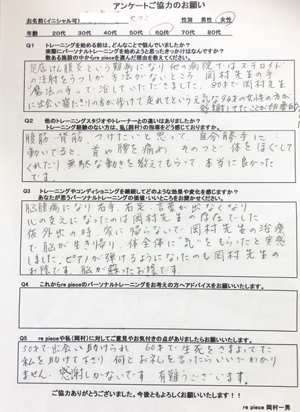 アンケートご協力のお願い
お名前(イニシャル可)
性別 男性・女性
年齢 20代 30代 40代 50代 60代 70代 80代
Q1 トレーニングを始める前は、どんなことで悩んでいましたか?
実際にパーソナルトレーニングを始めようと思ったきっかけはなんですか?
数ある施設の中からre pieceを選んだ理由を教えてください。
足底けん膜炎という難病になり他の病院ではステロイド
の注射をうつしか方法がないところ 岡村先生の手
"魔法の手"で治していただきました。
Q2 他のトレーニングスタジオやトレーナーとの違いはありましたか?
トレーニング経験のない方は、私(岡村)の指導をどう感じておりますか。
腹筋 背筋 つけたいと思って 自分勝手に
動いてると、首や腰を痛め そのつど体をほぐして
くれたり無駄な動きを教えてもらって本当に良かった
です。
Q3 トレーニングやコンディショニングを継続してどのような効果や変化を感じますか?
あなたが思うパーソナルトレーニングの価値・いいところをお聞かせください。
脳腫瘍になり右手、右足、言葉が出なくなり
心の支えになったのは岡村先生の存在でした
仮外出の時、家に帰らないで岡村先生の治療
で脳が生き帰り、体全体に"気"をもらったと実感
しました。ピアノが弾けるようになったのも岡村先生の
お陰です。脳が蘇ったお陰です。
Q4 これからre pieceのパーソナルトレーニングをお考えの方へアドバイスをお願いいたします。
Q5 re pieceや私(岡村)に対してご意見やお気付きの点がありましたらお願いします。
50才で出会い助けられ 60才で生死をさまよってた
私を助けて下さり 何とお礼を言ったらいいかわかり
ません 感謝しかないです 有難うございます。
ご協力ありがとうございました。今後ともよろしくお願いいたします!!
re piece 岡村一男